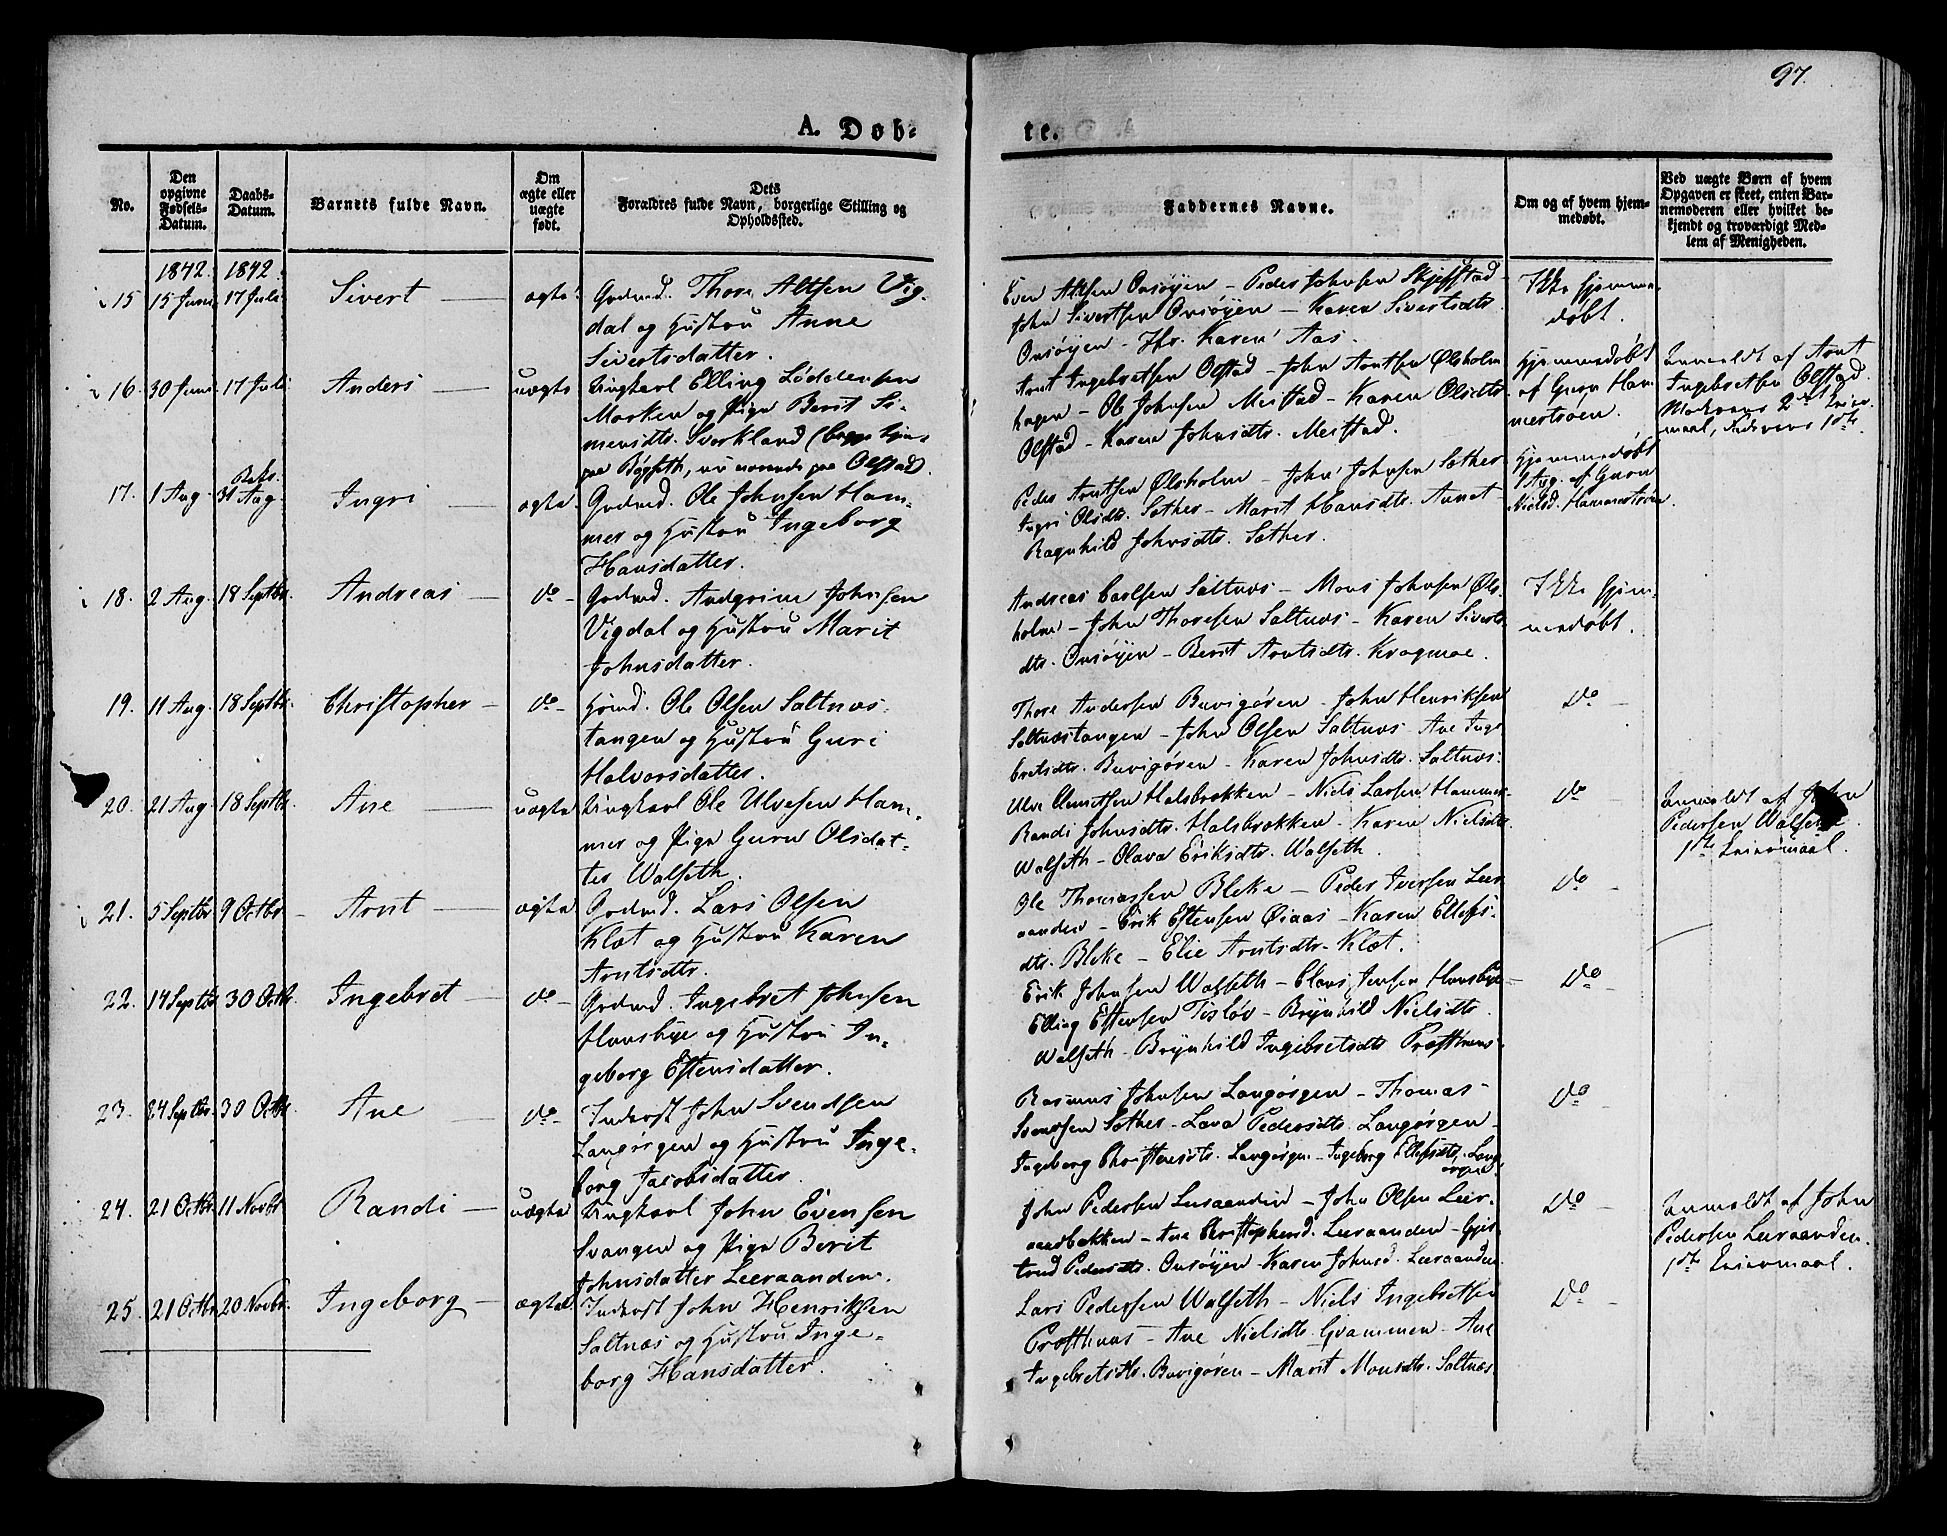 97.
A. Døb-
te.
No.
Den opgivne Fødsels-Datum.
Daabs-Datum.
Barnets fulde Navn.
Om ægte eller uægte født.
Dets Forældres fulde Navn, borgerlige Stilling og Opholdssted.
Faddernes Navne.
Om og af hvem hjem-medøbt.
Ved uægte Børn af hvem Opgaven er skeet, enten Bar-nemoderen eller hvilket be-kjendt og troværdigt Med-lem af Menigheden.
1842. 1842.
15. 15 Juni 17 Juli Sivert ægte Gaardmd. Thore Altsen Vig-
dal og Hustru Anne
Sivertsdatter.
Even Altsen Onsöyen – Peder Johnsen Skjefstad
John Sivertsen Onsöyen – Karen Sivertsdtr.
Onsöyen – Karen Aas.
Ikke hjemme-
døbt.
16. 30 Juni 17 Juli Anders uægte Ungkarl Elling Løddensen
Morken og Pige Berit Si-
mensdtr. Sverkland (begge
paa Bøgseth, nu værende paa Olstad.
Arnt Ingebretsen Olstad – John Arntsen Ølsholm
hagen – Ole Johnsen Mestad – Karen Olsdtr
Olstad – Karen Johnsdtr. Mestad.
Hjemmedøbt
af Guru Ham
mersröen.
Anmeldt af Arnt
Ingebretsen Olstad.
Moderens 2det Leier-
maal, Faderens 1ste.
17. 1 Aug. 31 Aug. Ingri ægte Gaardmd. Ole Johnsen Ham-
mer og Hustru Ingeborg
Hansdatter.
Peder Arntsen Ølsholm – John Johnsen Sæther
Ingri Olsdtr. Sæther – Marit Hansdtr.
Ragnhild Johnsdtr. Sæther.
Hjemmedøbt
1 Aug. af Guron
Nielsd. Hammersröen.
18. 2 Aug. 18 Septbr. Andreas do – Gaardmd. Andgrim Johnsen
Vigdal og Hustru Marit
Johnsdatter.
Andreas Carlsen Saltnæs – Mons Johnsen Øls-
holm – John Thoresen Saltnæs – Karen Siverts
dtr. Onsöyen – Berit Arntsdtr. Kregmoe.
Ikke hjem-
medøbt.
19. 11 Aug. 18 Septbr. Christopher – do – Huusmd. Ole Olsen Saltnæs-
tangen og Hustru Guri
Halvorsdatter.
Thore Andersen Buvigören – John Henriksen
Saltnæstangen – John Olsen Saltnæs – Ane Inge
bretsdtr. Buvigören – Karen Johnsdtr. Saltnæs.
do
20. 21 Aug. 18 Septbr. Ane uægte Ungkarl Ole Ulvesen Ham-
mer og Pige Guru Olsdat-
ter Walseth.
Ulve Halsbrækken – Niels Larsen Hammer
Randi Johnsdtr. Halsbrækken – Karen Nielsdtr.
Walseth – Olava Eriksdtr. Walseth.
do
Anmeldt af John
Pedersen Walseth.
1ste Leiermaal.
21. 5 Septbr 9 Octbr Arnt ægte Gaardmd. Lars Olsen
Klæt og Hustru Karen
Arntsdtr.
Ole Thomassen Bleke – Peder Iversen Leer
aanden – Erik Estensen Øiaas – Karen Ellefs-
dtr. Bleke – Elie Arntsdtr. Klæt.
do
22. 14 Septbr 30 Octbr. Ingebret – do – Gaardmd. Ingebret Johnsen
Huusbye og Hustru In-
geborg Estensdatter.
Erik Johnsen Walseth – Claus Jensen Huusbye –
Elling Estensen Tisløv – Brynhild Nielsdtr.
Walseth – Brynhild Ingebretsdtr. Præsthuus –
do
23. 24 Septbr. 30 Octbr. Ane do – Inderst John Svendsen
Langørgen og Hustru Inge-
borg Jacobsdatter.
Rasmus Johnsen Langørgen – Thomas
Svendsen Sæther – Lava Pedersdtr. Langørgen –
Ingeborg Christensdtr. Langørgen – Ingeborg Ellefsdtr. Lang
ørgen
do
24. 21 Octbr 11 Novbr Randi – uægte Ungkarl John Evensen
Svangen og Pige Berit
Johnsdatter Leeraanden.
John Pedersen Leeraanden – John Olsen Leer-
aandbækken – Ane Christophersd. Leeraanden – Gjer
trud Pedersdtr. Onsöyen – Karen Johnsd. Leeraanden
do
Anmeldt af John
Pedersen Leeraanden.
1ste Leiermaal.
25. 21 Octbr 20 Novbr. Ingeborg – ægte Inderst John Henriksen
Saltnæs og Hustru Inge-
borg Hansdatter.
Lars Pedersen Walseth – Niels Ingebretsen
Præsthuus – Ane Nielsdtr. Grammen – Ane
Ingebretsdtr. Buvigören – Marit Monsdtr. Saltnæs
do